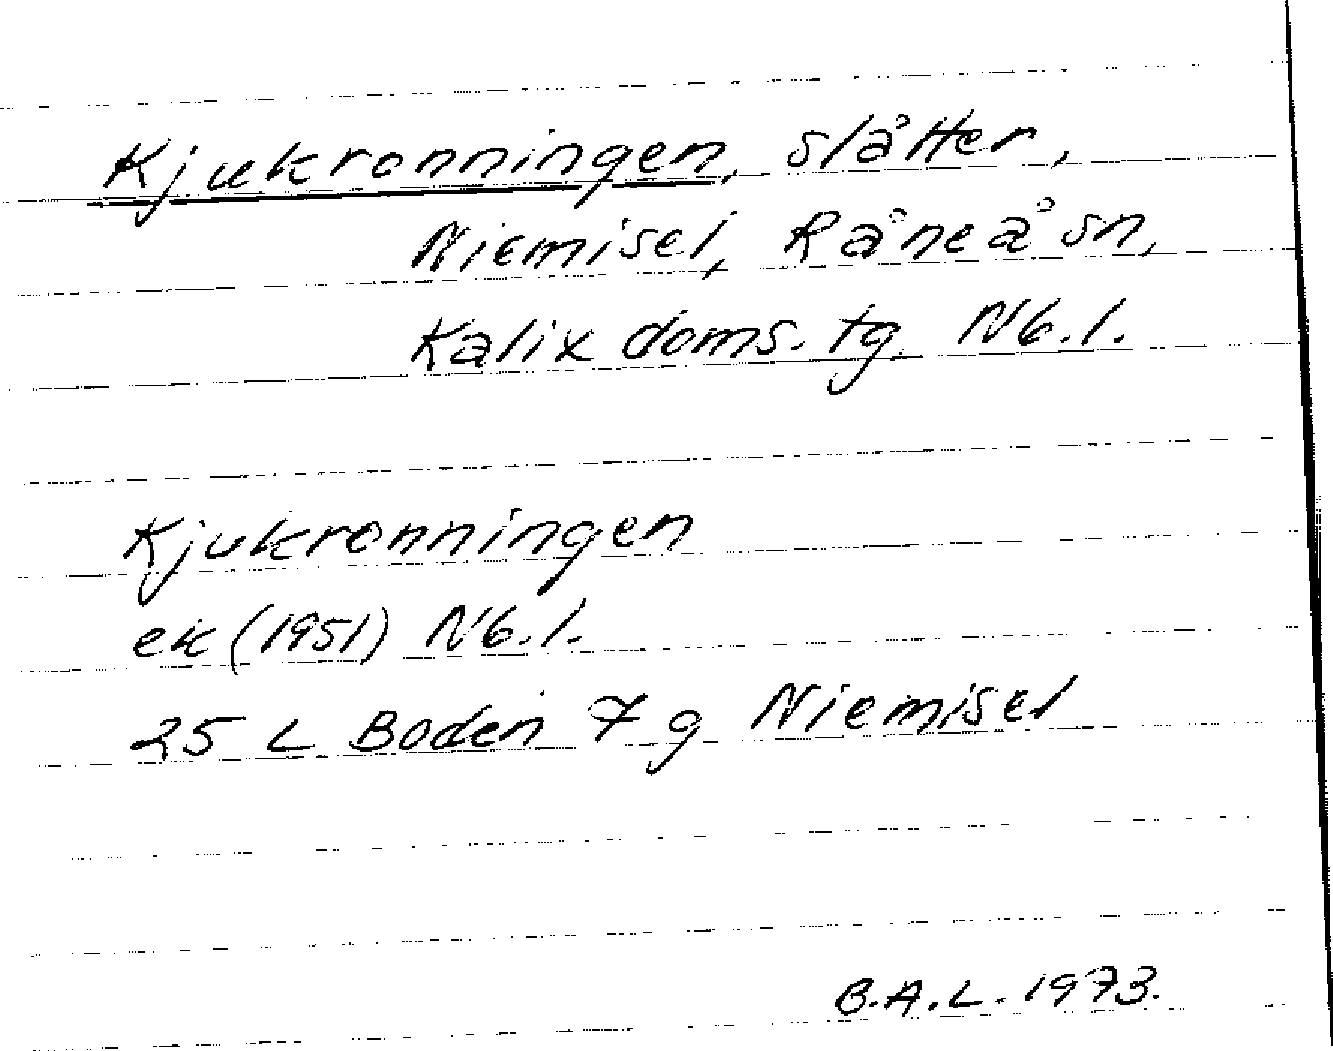 Kjukronningen, slåtter,
Niemisel, Råneå sn,
Kalix doms. tg. Nb.l.
Kjukronningen
ek (1951) Nb.l.
25 L Boden 7 g Niemisel
B.A.L. 1973.